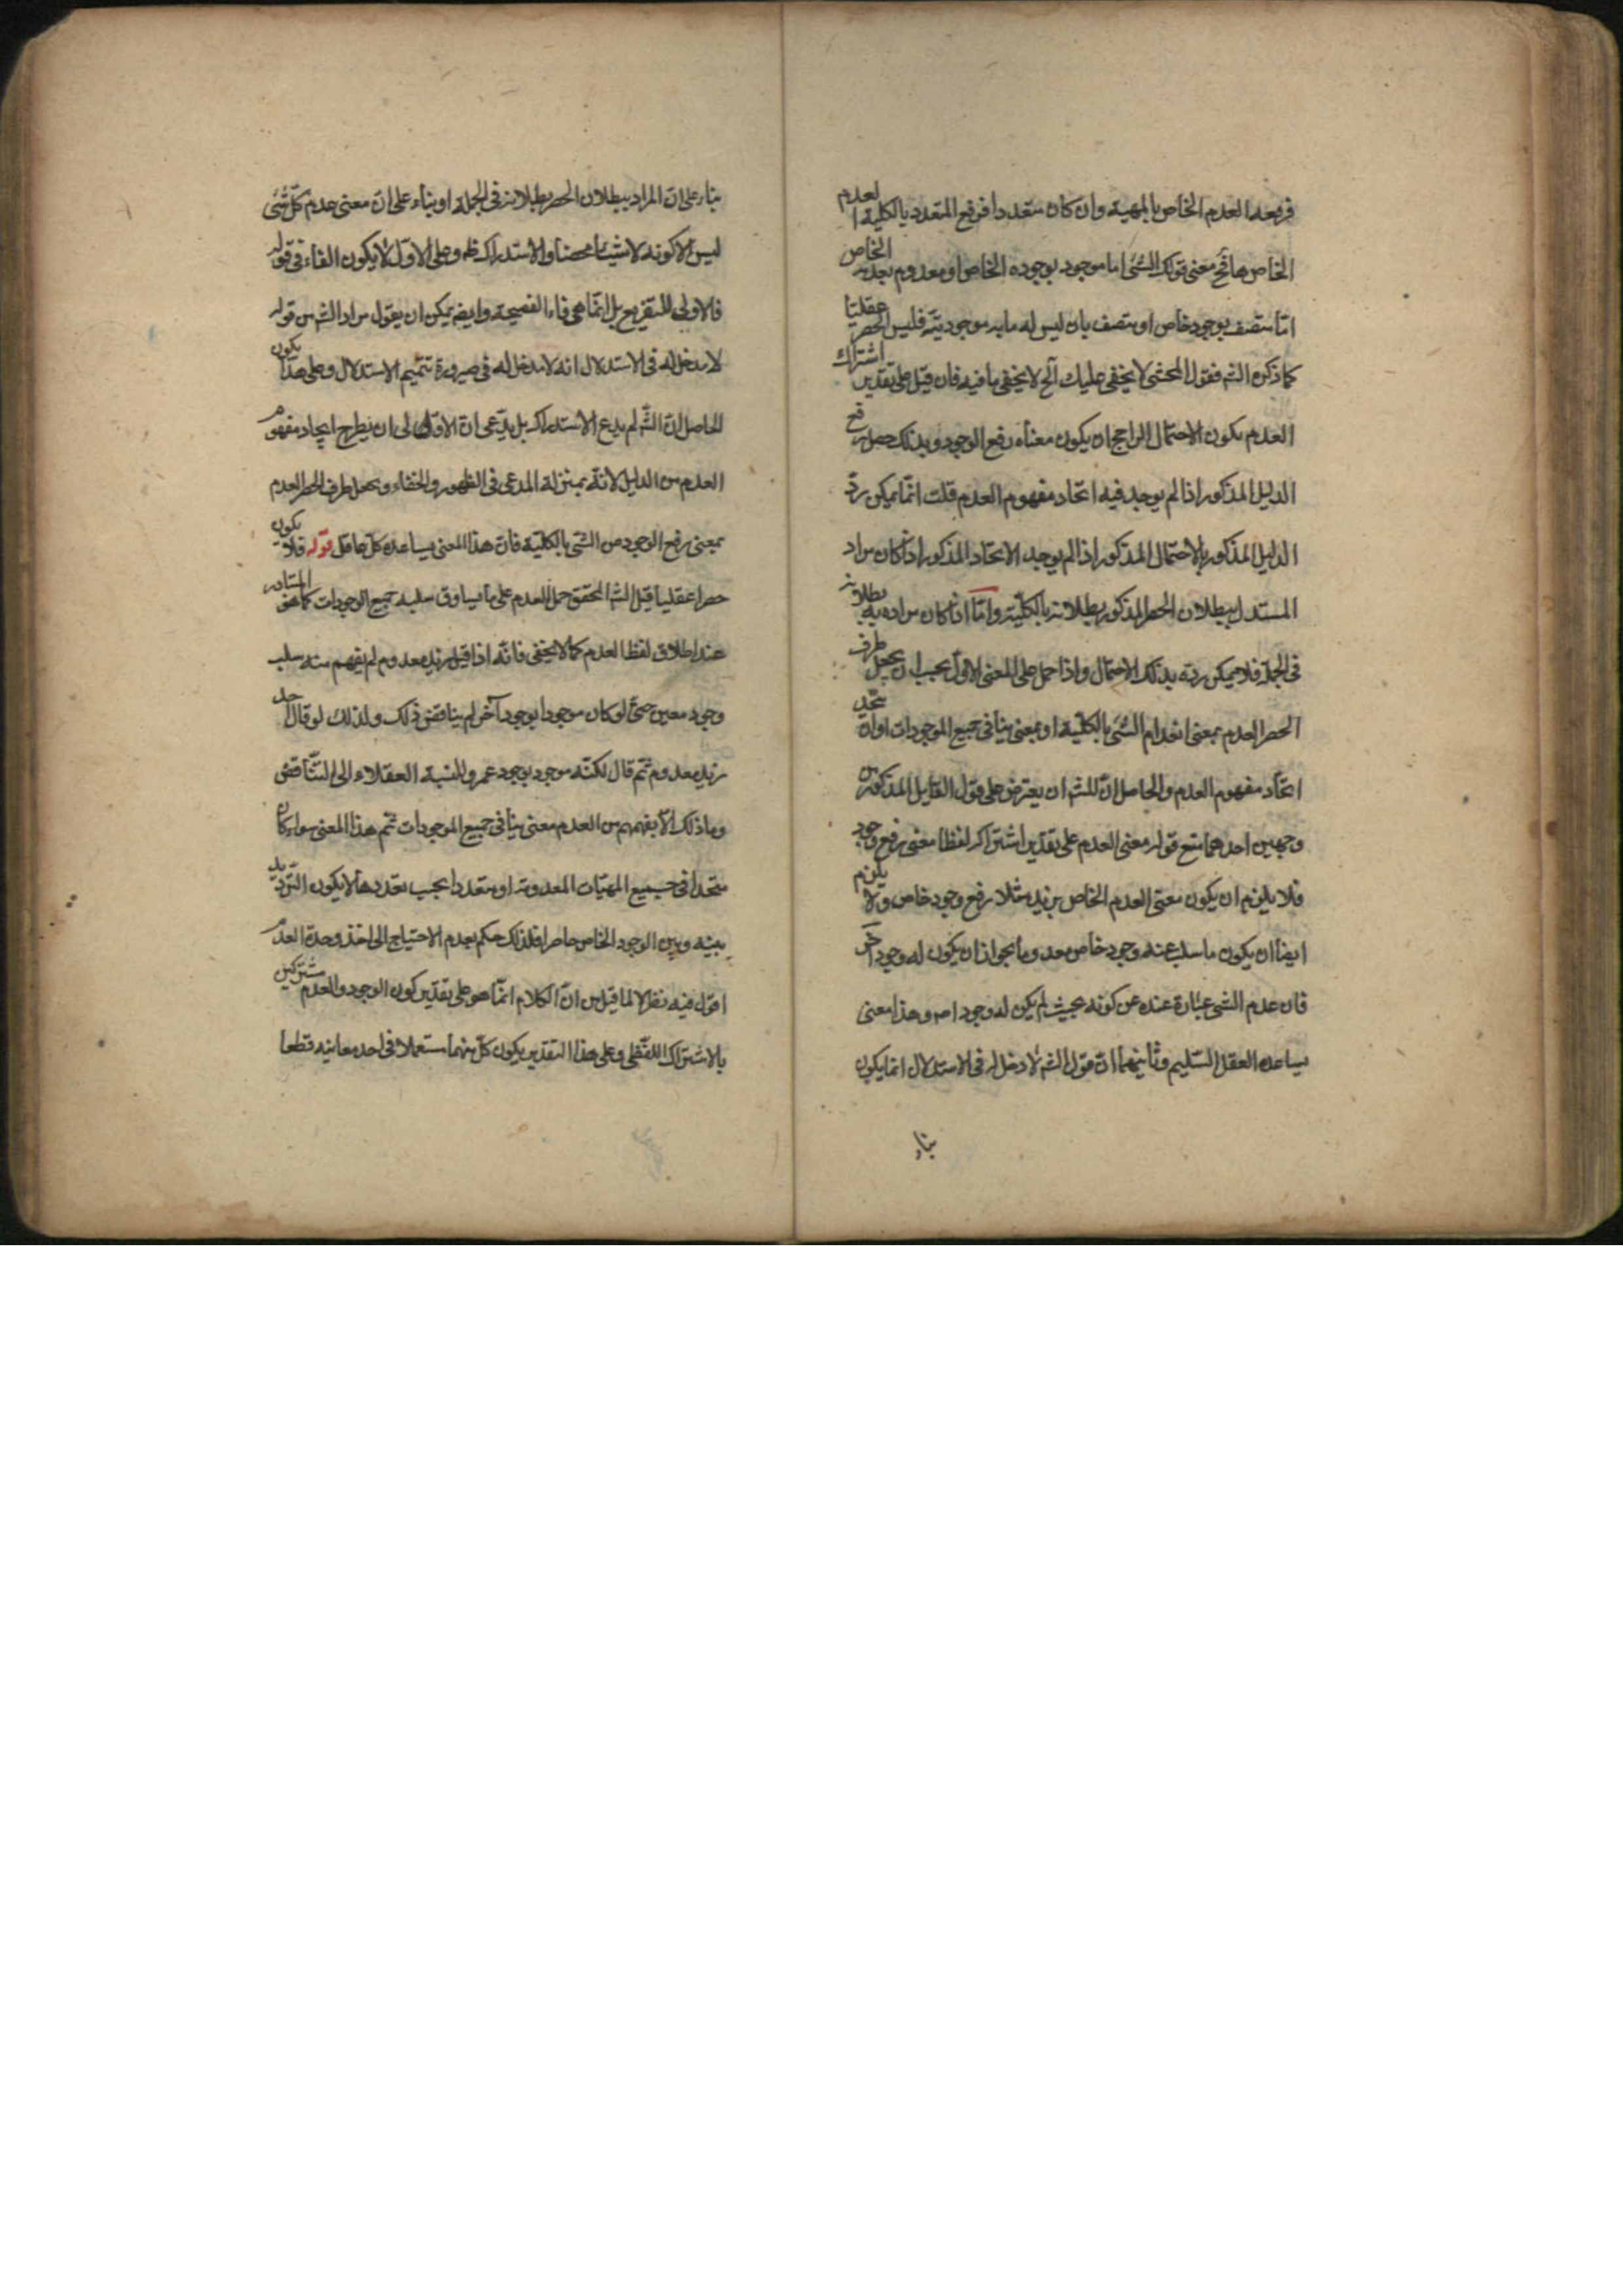 فرفعه العدم الخاص بالمهية وان كان متعددا فرفع المتعدد بالكلية العدم
الخاص هاتح معنى قولك الشئ اما موجود بوجوده الخاص او معدوم بعدمه الخاص
اما متصف بوجود خاص او متصف بان ليس له مابه موجوديته فليس الحصر عقليا
كما ذكره الشم فقول المحشى لا يخفى عليك آلخ لا يخفى ما فيه فان قيل على تقدير اشتراك
العدم يكون الاحتمال الراجح ان يكون معناه رفع الوجود وبذلك حصل رفع
الدليل المذكور اذا لم يوجد فيه اتحاد مفهوم العدم قلت انما يمكن ردّ
الدليل المذكور بالاحتمال المذكور اذا لم يوجد الاتحاد المذكور اذا كان مراد
المستدل ببطلان الحصر المذكور بطلانه بالكلية واما اذا كان مراده به بطلانه
فى الجملة فلا يمكن ردّه بذلك الاحتمال واذا حمل على المعنى الاول يجب ان يجعل طرف
الحصر العدم بمعنى انعدام الشئ بالكلية او بمعنى ينافى جميع الموجودات اواة متحد
اتحاد مفهوم العدم والحاصل انّ للشم ان يعترض على قول القايل المذكور من
وجهين احدهما منع قوله معنى العدم على تقدير اشتراكه لفظا معنى رفع وجود
فلا يلزم ان يكون معنى العدم الخاص بزيد مثلا رفع وجود خاص ولا يلزم
ايضا ان يكون ما سلب عنه وجود خاص معدوما بجواز ان يكون له وجود آخر
فان عدم الشئ عبارة عنده عن كونه بحيث لم يكن له وجود اصه وهذا معنى
يساعده العقل السليم وثانيهما ان قول الشم لا دخل له فى الاستدلال انما يكون
بناء
بناء على ان المراد ببطلان الحصر بطلانه فى الجملة او بناء على ان معنى عدم كلّ شئ
ليس الا كونه لا شيئا محضا والاستدراك ظ وعلى الاول لا يكون الفاء فى قوله
فالاولى للتفريع بل انما هى فاء الفصيحة وايضه يمكن ان يقول مراد الشم من قوله
لا مدخل له فى الاستدلال انه لا مدخل له فى صيرورة تتميم الاستدلال وعلى هذا يكون
الحاصل ان الشم لم يدع الاستدراك بل يدعى ان الاولى ان يطرح ايجاد مفهوم
العدم من الدليل لانه بمنزلة المدعى فى الظهور والخفاء ويجعل طرف الحصر العدم
بمعنى رفع الوجود من الشئ بالكلية فان هذا المعنى يساعده كل عاقل قوله فلا يكون
حصرا عقليا قيل الشم المحقق حمل العدم على ما يساوق سلبه جميع الوجودات كما هو المتبادر
عند اطلاق لفظ العدم كما لا يخفى فانه اذا قيل زيد معدوم لم يفهم منه سلب
وجود معين حتى لو كان موجودا بوجود آخر لم يناقض ذلك ولذلك لو قال احد
زيد معدوم ثم قال لكنه موجود بوجود عمرو لنسبه العقلاء الى التناقض
وما ذلك الا بفهمهم من العدم معنى ينافى جميع الموجودات ثم هذا المعنى سواء كان
متحدا فى جميع المهيات المعدومة او متعددا بحسب تعددها لا يكون الترديد
بينه وبين الوجود الخاص حاصرا فلذلك حكم بعدم الاحتياج الى اخذ وحدة العدم
اقول فيه نظر لا لما قيل من ان الكلام انما هو على تقدير كون الوجود والعدم مشتركين
بالاشتراك اللفظى وعلى هذا التقدير يكون كل منهما مستعملا فى احد معانيه قطعا